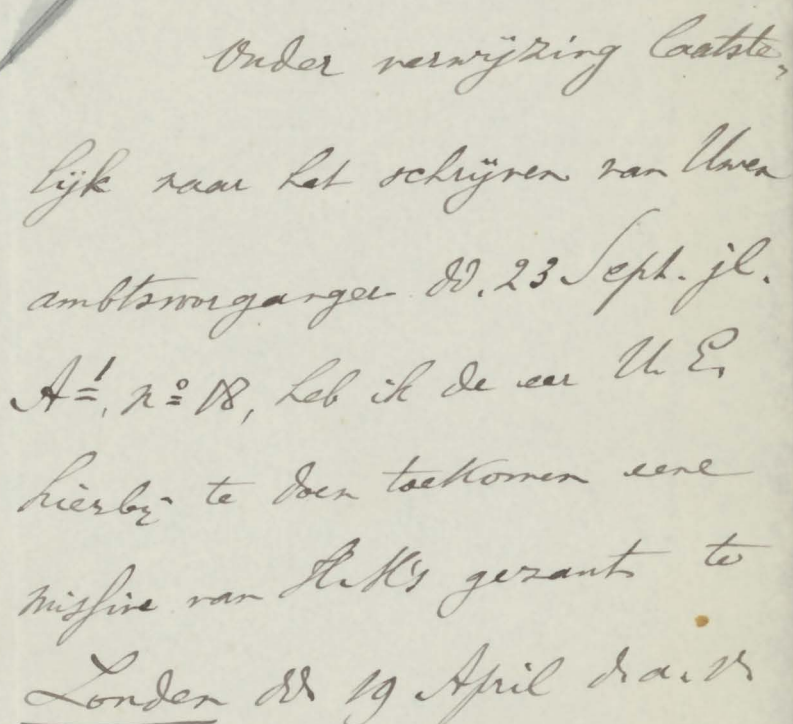 Onder verwijzing laatste-
lijk naar het schrijven van Uwen
ambtsvoorganger dd. 23 Sept. jl.
A1, no 18, heb ik de eer U. E.
hierby te doen toekomen eene
missive van H.M's gezant te
Londen dd 19 April d.a.v.